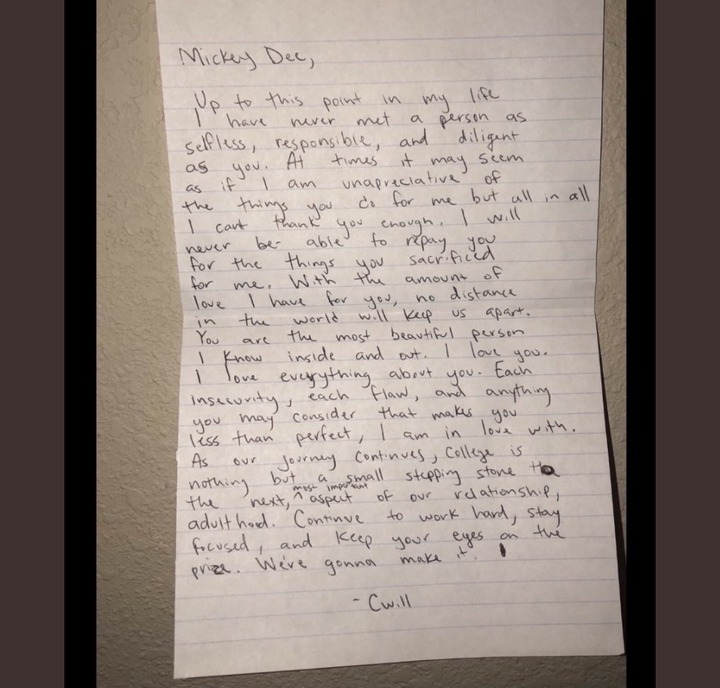 Mickey Dee,
Up to this point in my life
I have never met a person as
selfless, responsible, and diligent
as you. At times it may seem
as if I am unapreciative of
the things you do for me but all in all
I cant thank you enough. I will
never be able to repay you
for the things you sacrificed
for me. With the amount of
love I have for you, no distance
in the world will keep us apart.
You are the most beautiful person
I know inside and out. I love you.
I love everything about you. Each
insecurity, each flaw, and anything
you may consider that makes you
less than perfect, I am in love with.
As our journey continues, college is
nothing but a small stepping stone to
the next, most important aspect of our relationship,
adulthood. Continue to work hard, stay
focused, and keep your eyes on the
prize. We're gonna make it.
- Cwill